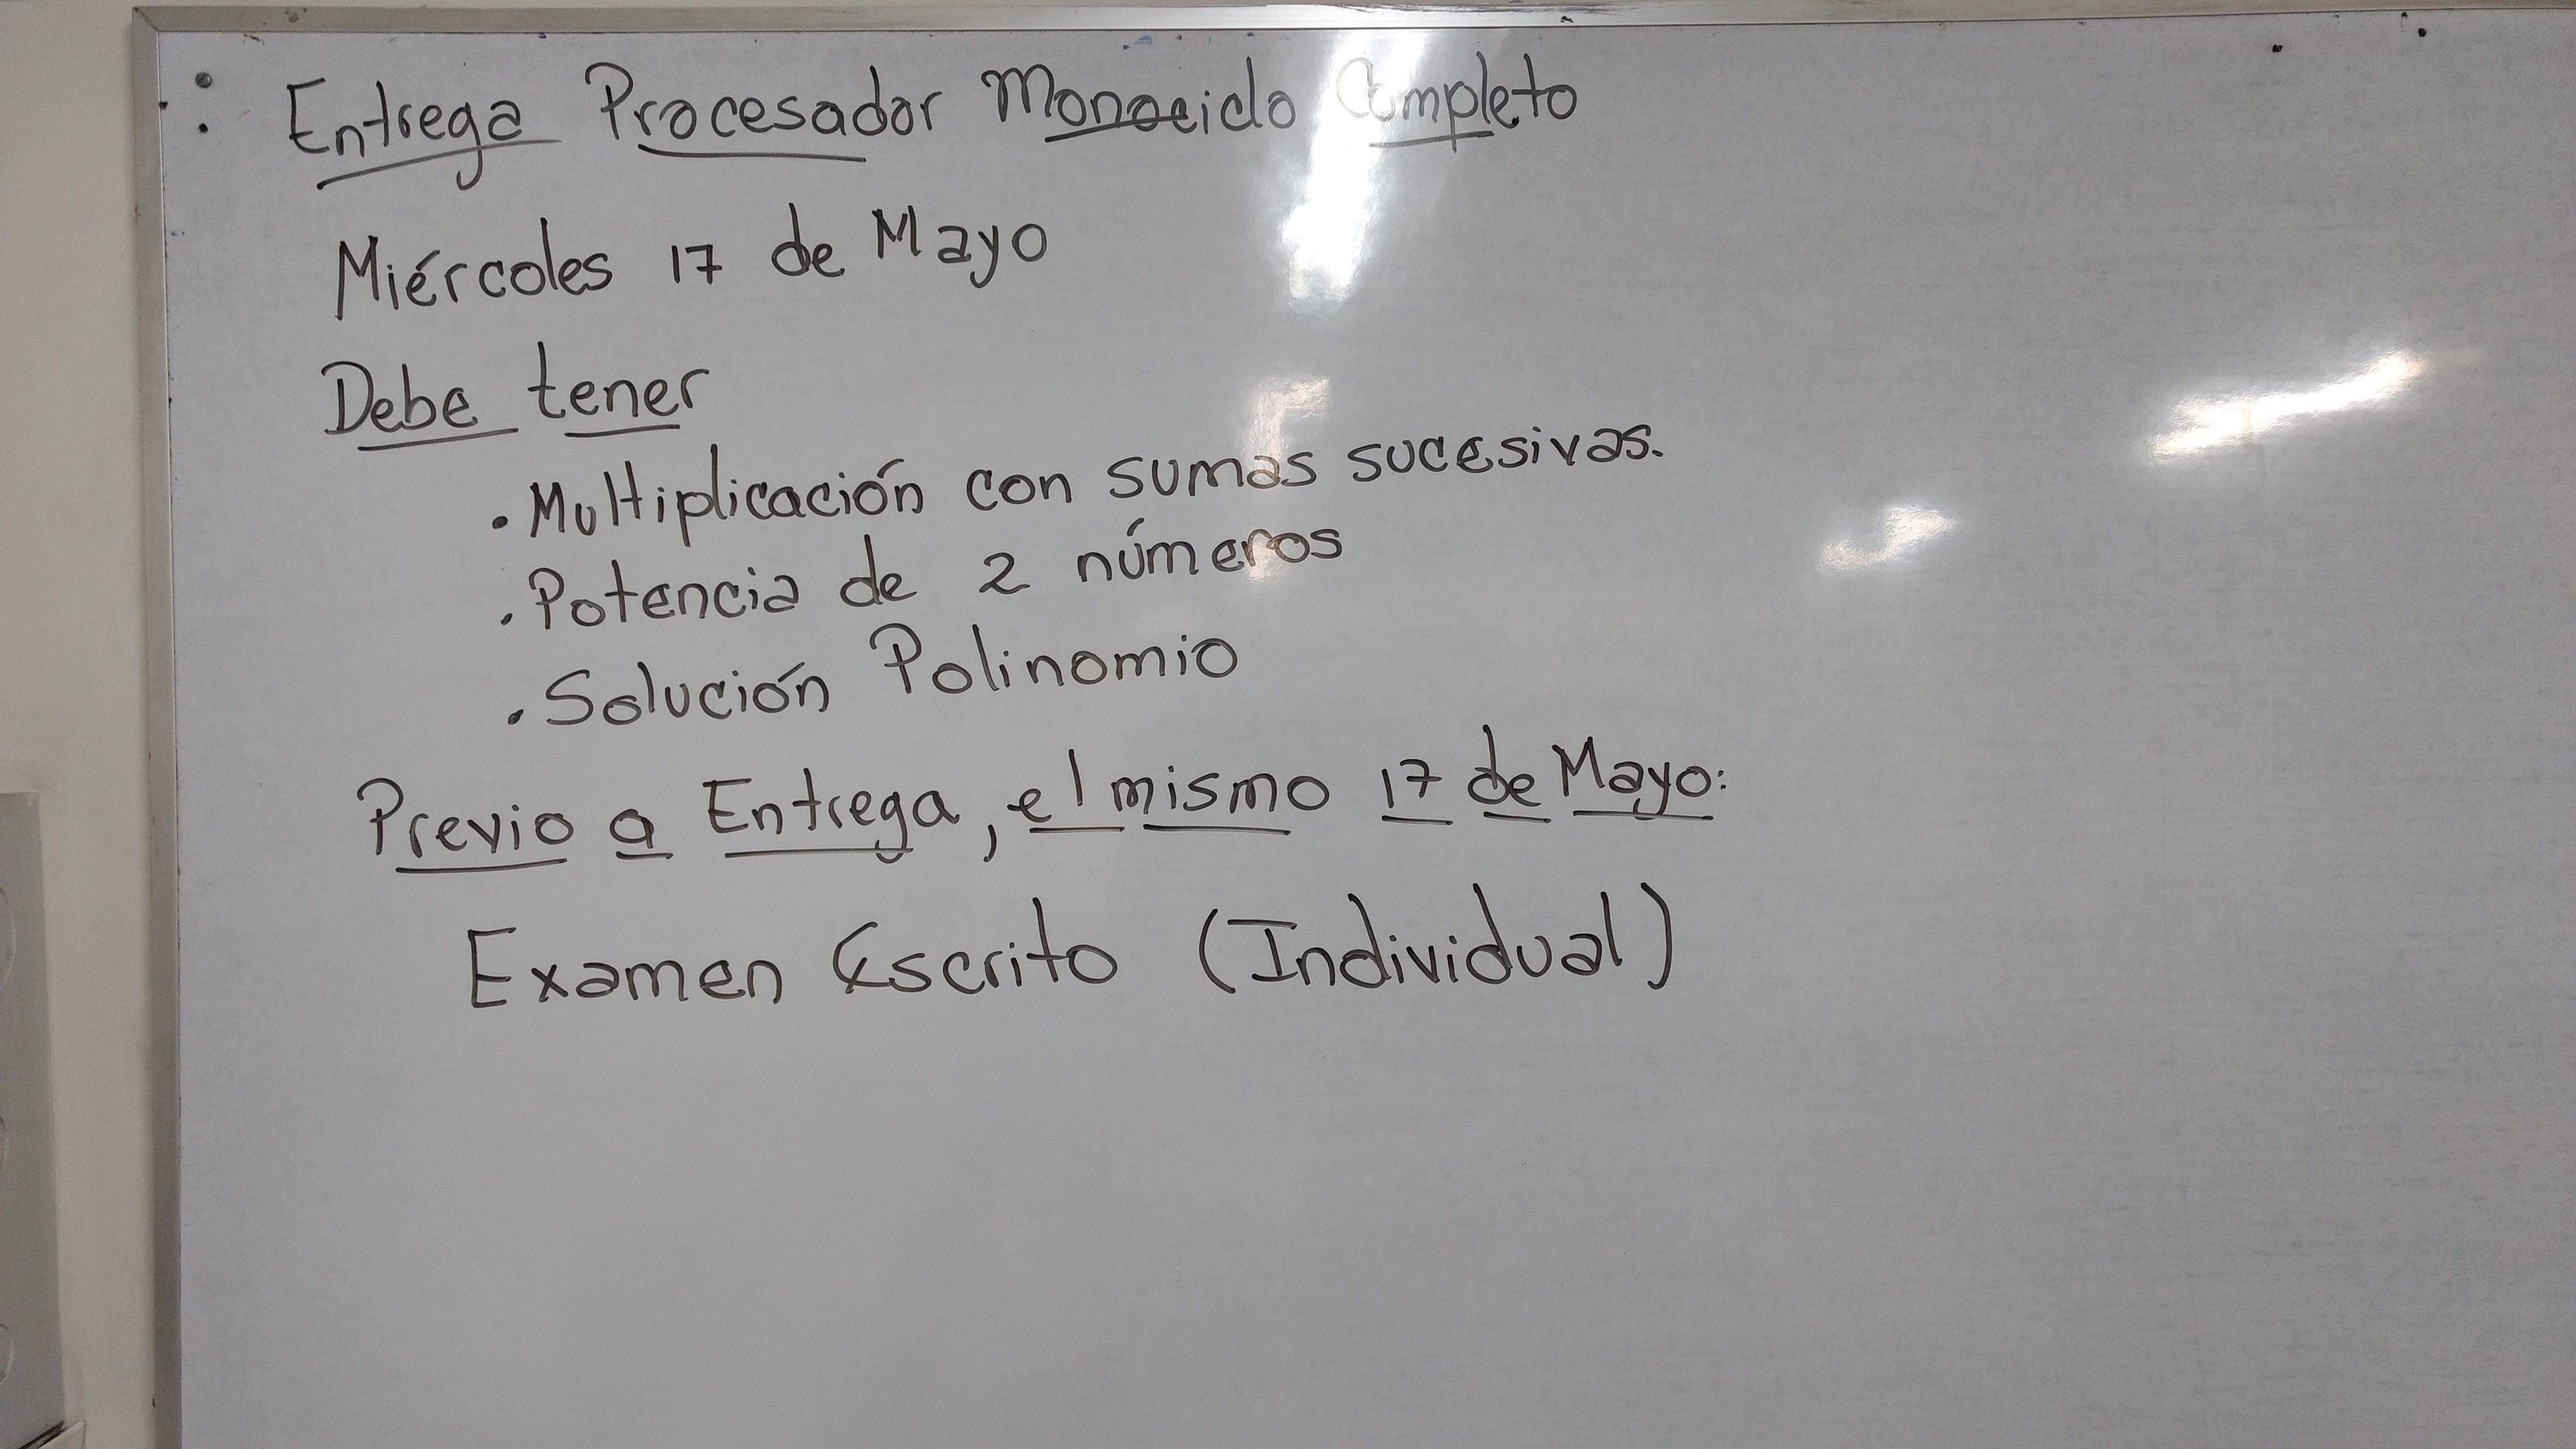 Entrega Procesador Monociclo Completo
Miércoles 17 de Mayo
Debe tener
. Multiplicación con sumas sucesivas.
. Potencia de 2 números
. Solución Polinomio
Previo a Entrega, el mismo 17 de Mayo:
Examen Escrito (Individual)